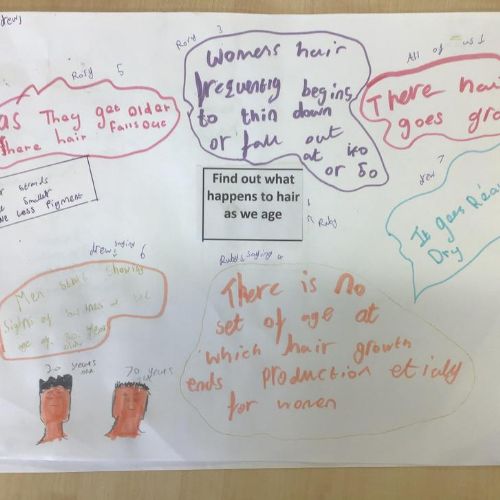 Rosy 5
as They get older
there hair falls out
Rosy 3
Womens hair
frequently begins
to thin down
or fall out
at 40
or 50
All of us 1
There hai
goes gra
strands
smaller
Less Pigment
Find out what
happens to hair
as we age
Ruby
drew 7
It goes Rea
Dry
drew saying 6
Men start showing
signs of
age of 30 years
old
20 years
old
70 years
Rubys saying 4
There is no
set of age at
which hair growth
ends production eticaly
for women